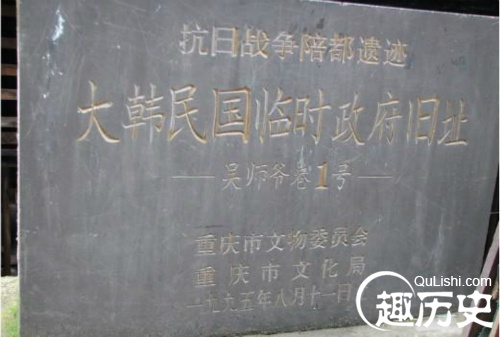 抗日战争陪都遗迹
大韩民国临时政府旧址
—吴师爷巷1号—
重庆市文物委员会
重庆市文化局
一九九五年八月十一日
QuLishi.com
趣历史